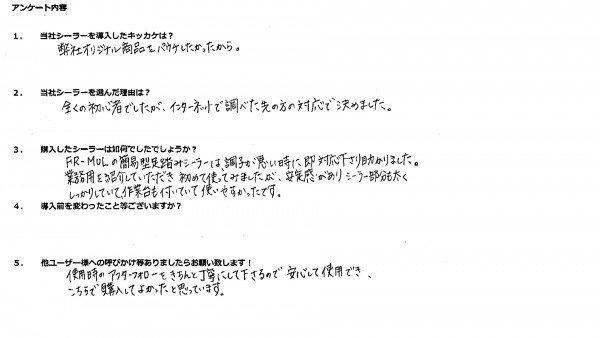 アンケート内容
1. 当社シーラーを導入したキッカケは？
弊社オリジナル商品をパウチしたかったから。
2. 当社シーラーを選んだ理由は？
全くの初心者でしたが、インターネットで調べた先の方の対応で決めました。
3. 購入したシーラーは如何でしたでしょうか？
FR-MULの簡易型足踏みシーラーは、調子が悪い時に即対応下さり助かりました。
業務用を紹介していただき初めて使ってみましたが、安定感がありシーラー部分も太く
しっかりしていて、作業台も付いていて使いやすかったです。
4. 導入前を変わったこと等ございますか？
5. 他ユーザー様への呼びかけ等ありましたらお願い致します！
使用時のアフターフォローをきちんと丁寧にして下さるので安心して使用でき、
こちらで購入してよかったと思っています。